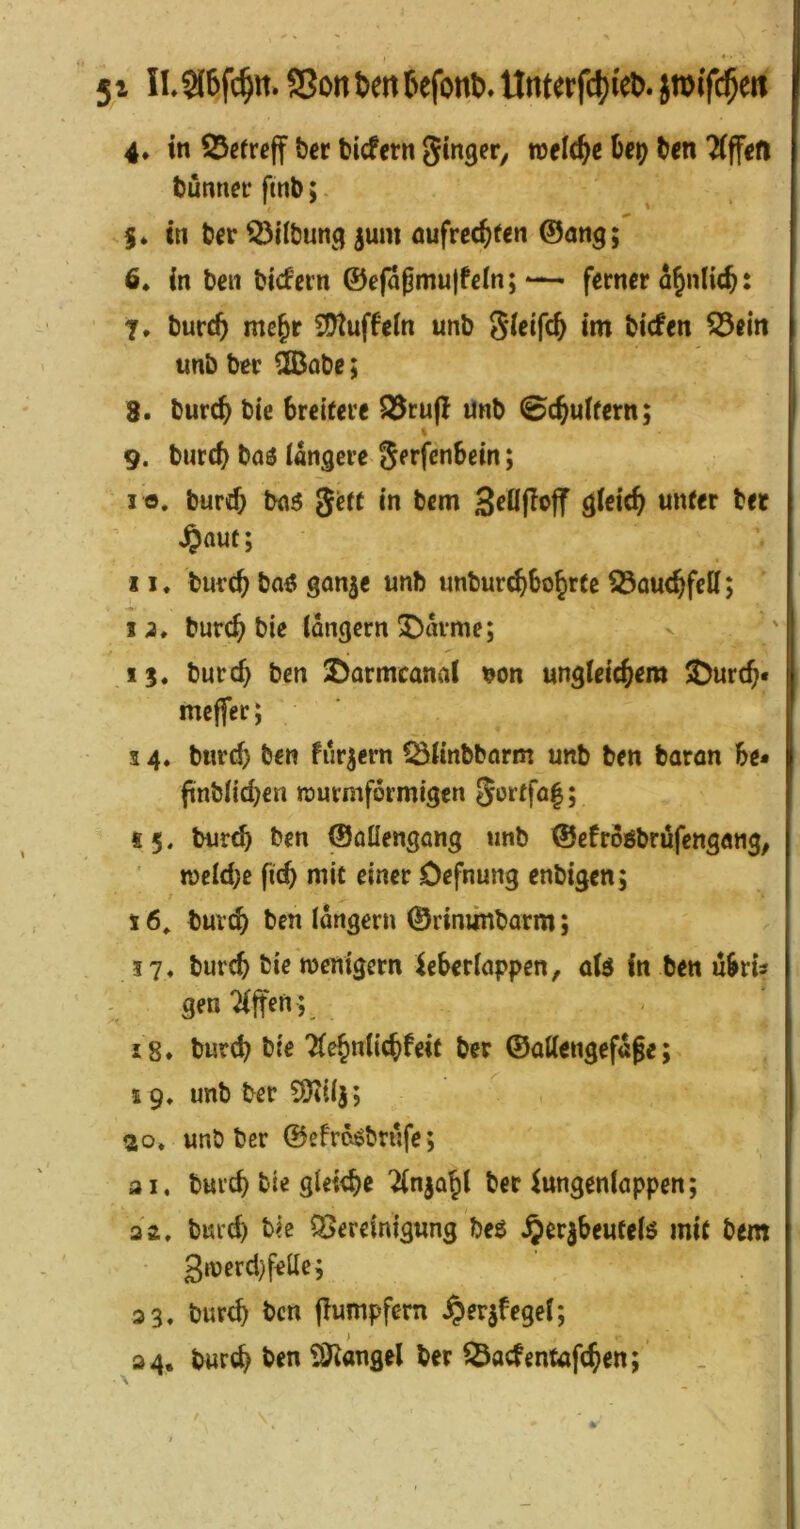 52 II. Abschn. Von den besond. Unterschied. zwischen
4. in Betreff der dickern Finger, welche bey den Affen
dünner sind;
5. in der Bildung zum aufrechten Gang;
6. in den dickern Gesäßmuskeln; — ferner ähnlich:
7. durch mehr Muskeln und Fleisch im dicken Bein
und der Wade;
8. durch die breitere Brust und Schultern;
9. durch das längere Fersenbein;
10. durch das Fett in dem Zellstoff gleich unter der
Haut;
11. durch das ganze und undurchbohrte Bauchfell;
12. durch die längern Därme;
13. durch den Darmcanal von ungleichem Durch-
messer;
14. durch den kürzern Blinddarm und den daran be-
findlichen wurmförmigen Fortsatz;
15. durch den Gallengang und Gekrösdrüsengang,
welche sich mit einer Oefnung endigen;
16. durch den längern Grimmdarm;
17. durch die wenigern Leberlappen, als in den übri-
gen Affen;
18. durch die Aehnlichkeit der Gallengefäße;
19. und der Milz;
20. und der Gekrösdrüse;
21. durch die gleiche Anzahl der Lungenlappen;
22. durch die Vereinigung des Herzbeutels mit dem
Zwerchfelle;
23. durch den stumpfern Herzkegel;
24. durch den Mangel der Backentaschen;